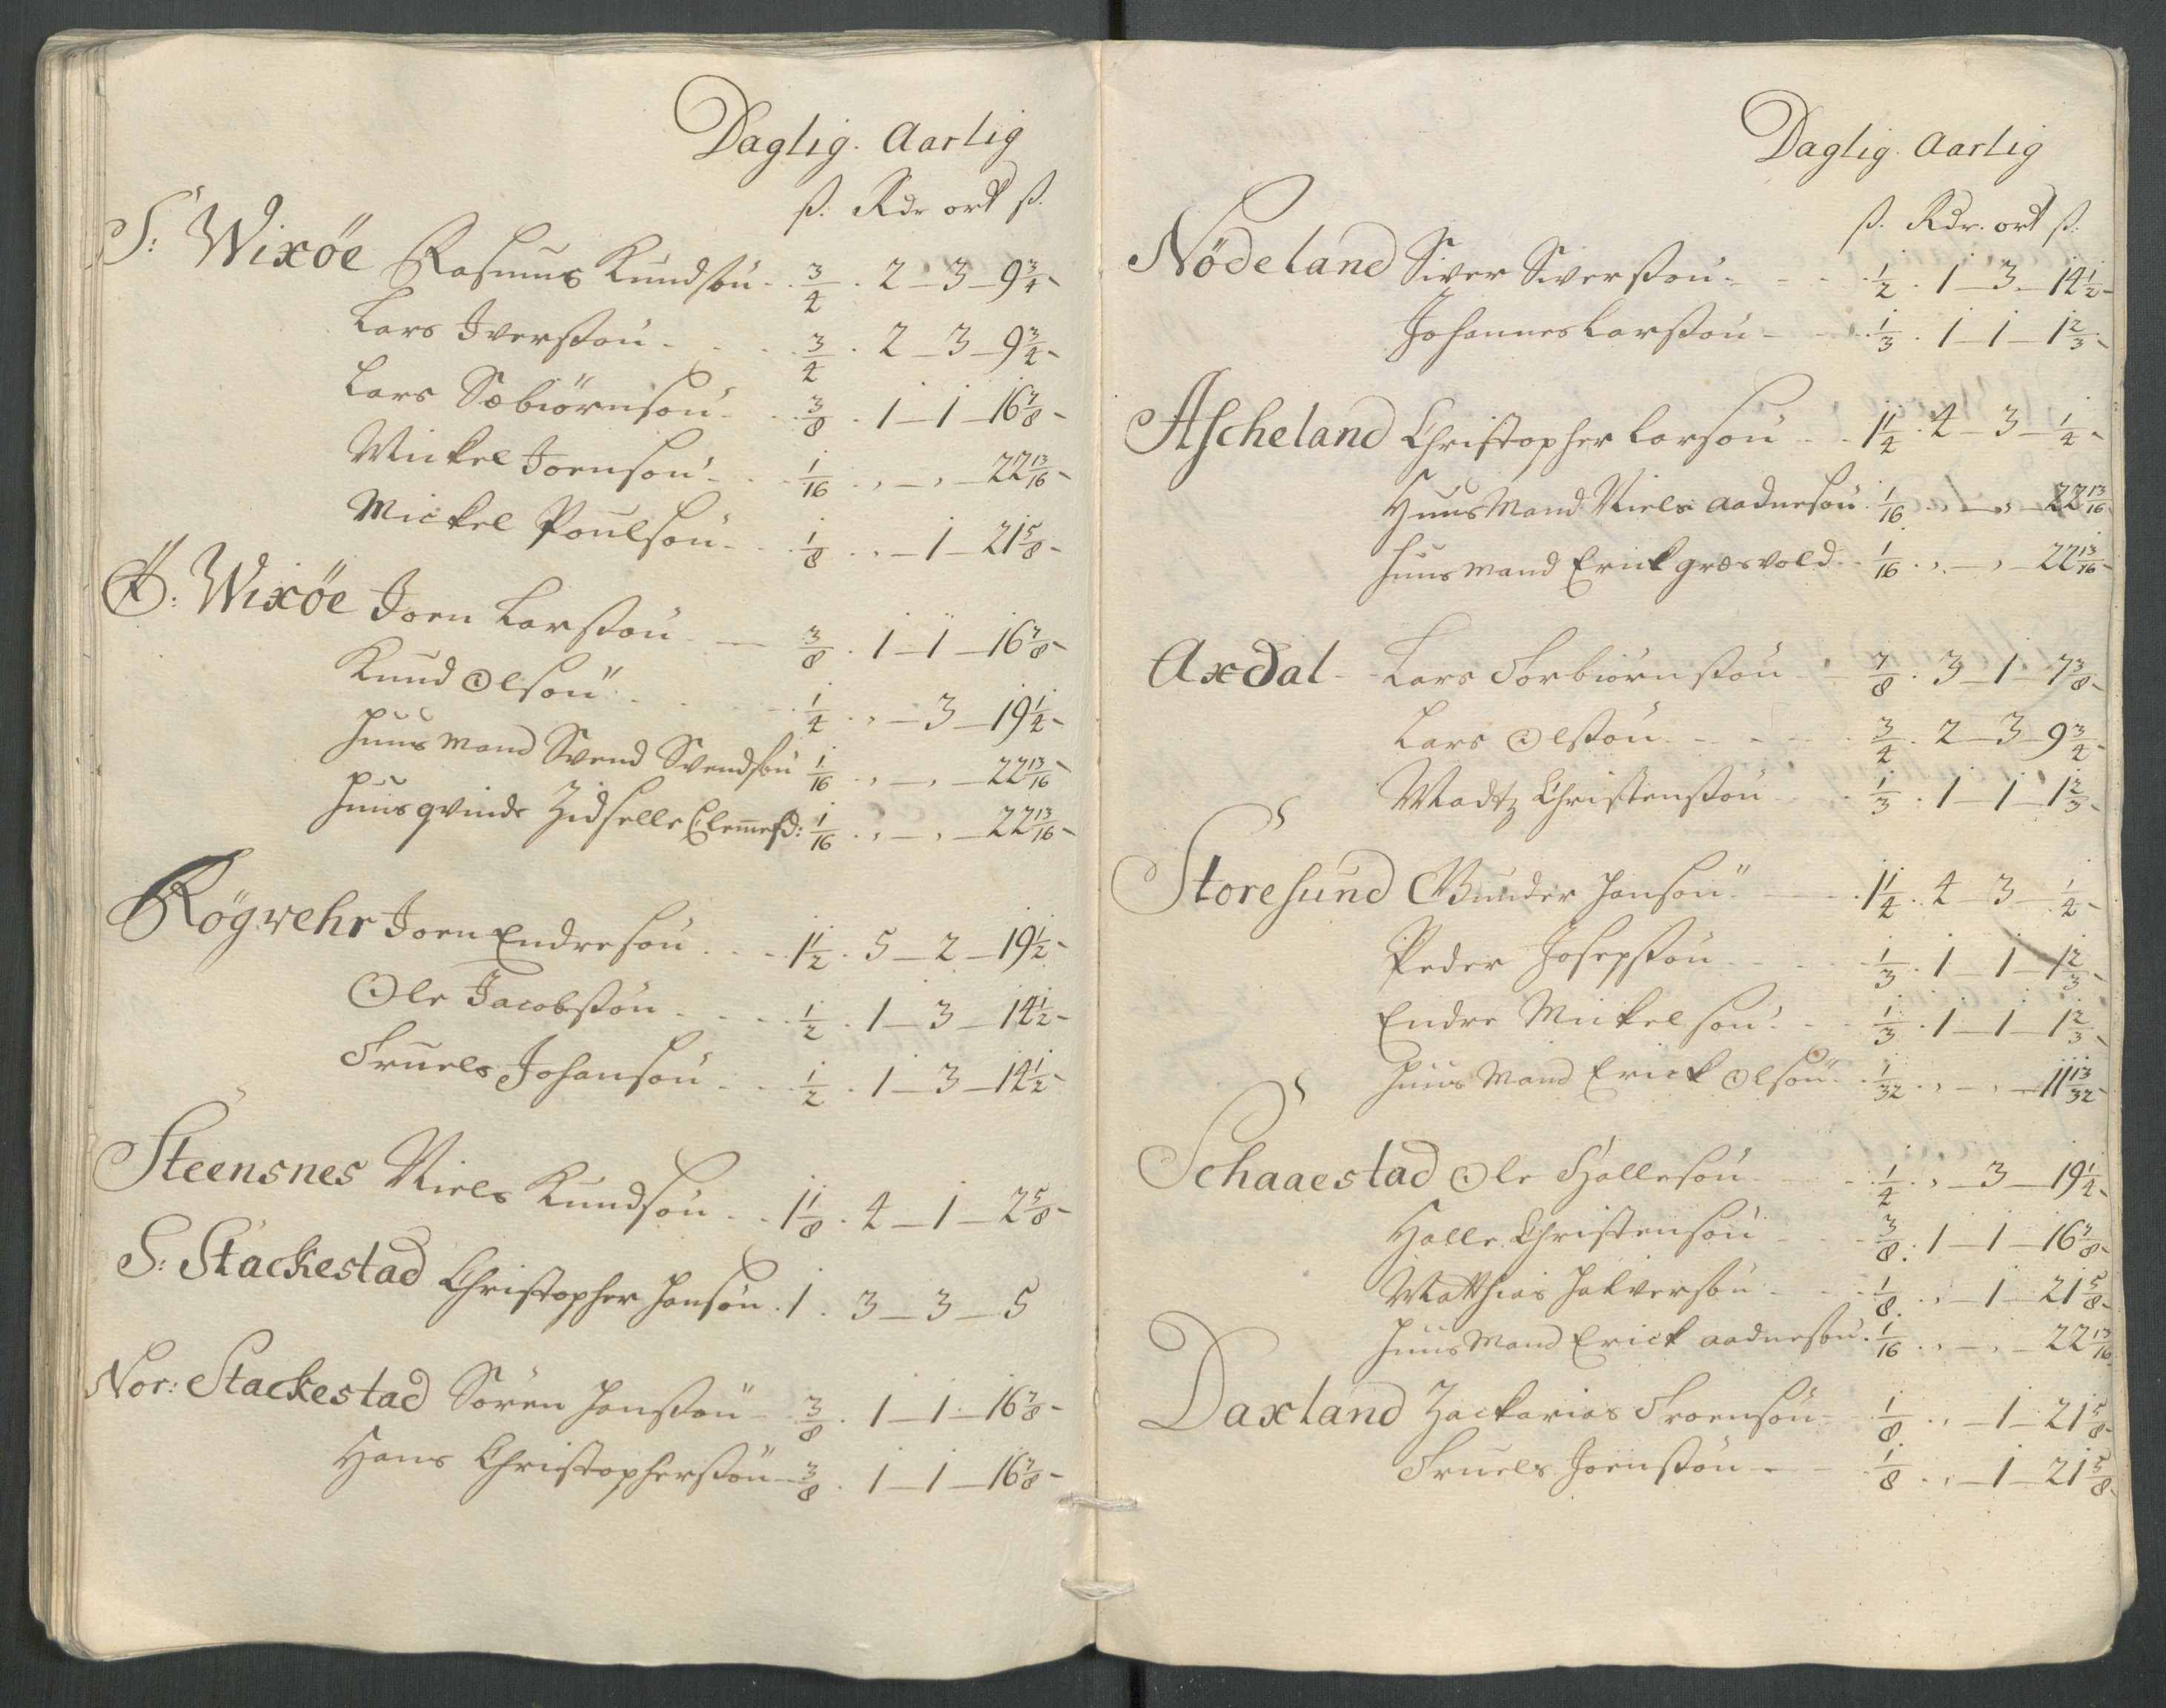 Daglig. Aarlig
ß. Rdr ort ß.
S: Wixøe Rasmus Knudsøn - 3/4 . 2 - 3 - 9 3/4 -
Lars Iverßøn - 3/4 . 2 - 3 - 9 3/4 -
Lars Sæbiørnsøn - 3/8 . 1 - 1 - 16 7/8 -
Mickel Joensøn - 1/16 . , - , - 22 13/16 -
Mickel Poulsøn - 1/8 . , - 1 - 21 5/8 -
Ø: Wixøe Joen Larßøn - 3/8 . 1 - 1 - 16 7/8 -
Knud Olsøn - 1/4 . , - 3 - 19 1/4 -
Huusmand Svend Svendsøn 1/16 . , - , - 22 13/16 -
Huusqvinde Zidselle Clemmesd: 1/16 . , - , - 22 13/16 -
Røgvehr Joen Endresøn - 1 1/2 . 5 - 2 - 19 1/2 -
Ole Jacobsøn - 1/2 . 1 - 3 - 14 1/2 -
Truels Johansøn - 1/2 . 1 - 3 - 14 1/2
Steensnes Niels Knudsøn - 1 1/8 . 4 - 1 - 2 5/8 -
S: Stackestad Christopher Hansøn . 1 . 3 - 3 - 5
Nor: Stackestad Søren Hanßøn - 3/8 . 1 - 1 - 16 7/8 -
Hans Christopherßøn - 3/8 . 1 - 1 - 16 7/8 -
Daglig. Aarlig
ß. Rdr. ort ß.
Nødeland Siver Siverßøn - 1/2 . 1 - 3 - 14 1/2 -
Johannes Larßøn - 1/3 . 1 - 1 - 1 2/3 -
Ascheland Christopher Larsøn - 1 1/4 . 4 - 3 - 1/4 -
Huusmand Niels Aadnesøn . 1/16 . , - , - 22 13/16
Huusmand Erick græsvold - 1/16 . , - , - 22 13/16 -
Axdal - Lars Torbiørnßøn - 7/8 . 3 - 1 - 7 3/8 -
Lars Olßøn - 3/4 . 2 - 3 - 9 3/4 -
Madtz Christenßøn - 1/3 . 1 - 1 - 1 2/3 -
Storesund Gunder Hansøn - 1 1/4 . 4 - 3 - 1/4 -
Peder Josepßøn - 1/3 . 1 - 1 - 1 2/3 -
Endre Mickelsøn - 1/3 . 1 - 1 - 1 2/3 -
Huusmand Erick Olsøn - 1/32 . , - , - 11 13/32 -
Schaaestad Ole Hallesøn - 1/4 . , - 3 - 19 1/4 -
Halle Christensøn - 3/8 . 1 - 1 - 16 7/8 -
Matthias Halversøn - 1/8 . , - 1 - 21 5/8 -
Huusmand Erick Aadnesøn . 1/16 . , - , - 22 13/16
Daxland Zackarias Troensøn - 1/8 . , - 1 - 21 5/8 -
Truels Joenßøn - 1/8 . , - 1 - 21 5/8 -